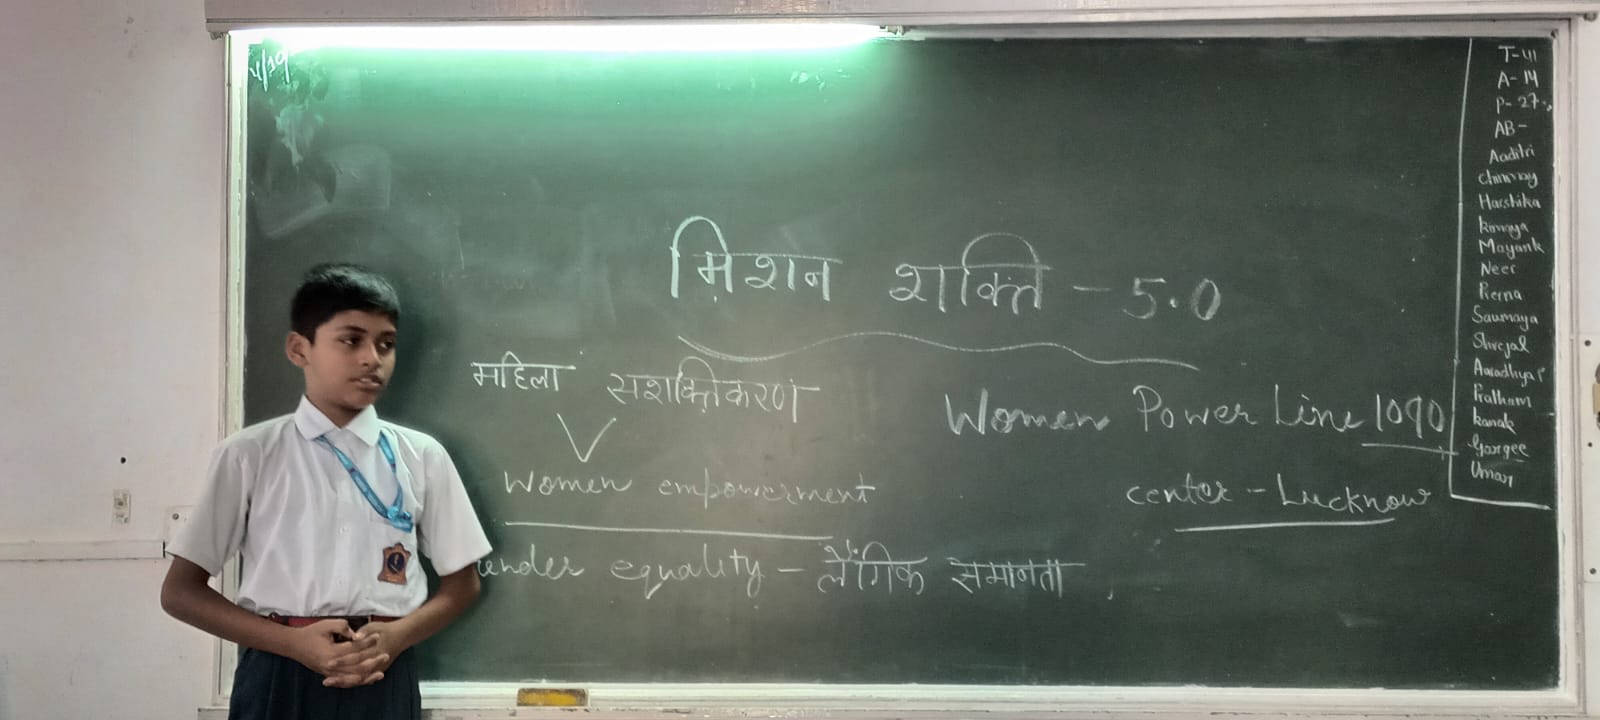 मिशन शक्ति - 5.0
महिला सशक्तिकरण
Women Power Line 1090
Women empowerment
center - Lucknow
ender equality - लैंगिक समानता
T-41
A-14
P-27
AB-
Aaditri
Chinmay
Harshika
Mayank
Neer
Prerna
Saumaya
Shrejal
Aaradhya P
Pratham
kanak
Gargee
Umar